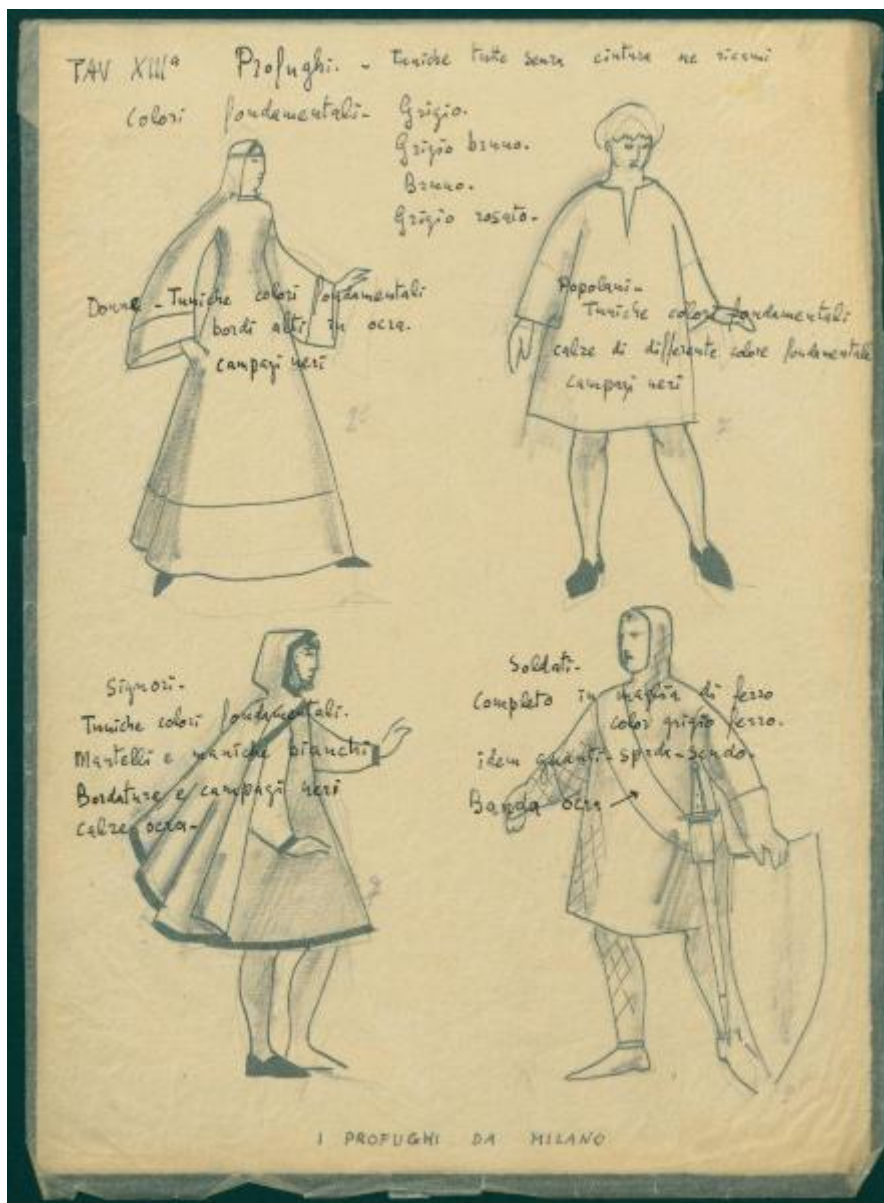 TAV XIIIª Profughi. - Tuniche tutte senza cinture ne ricami
Colori fondamentali - Grigio.
Grigio bruno.
Bruno.
Grigio rosato.
Donne - Tuniche colori fondamentali
bordi alti in ocra.
campagi neri
Popolani -
Tuniche colori fondamentali
calze di differente colore fondamentale
campagi neri
Signori -
Tuniche colori fondamentali.
Mantelli e maniche bianchi
Bordature e campagi neri
calze ocra -
Soldati -
Completo in maglia di ferro
color grigio ferro.
idem guanti - spada - scudo.
Banda ocra
I PROFUGHI DA MILANO